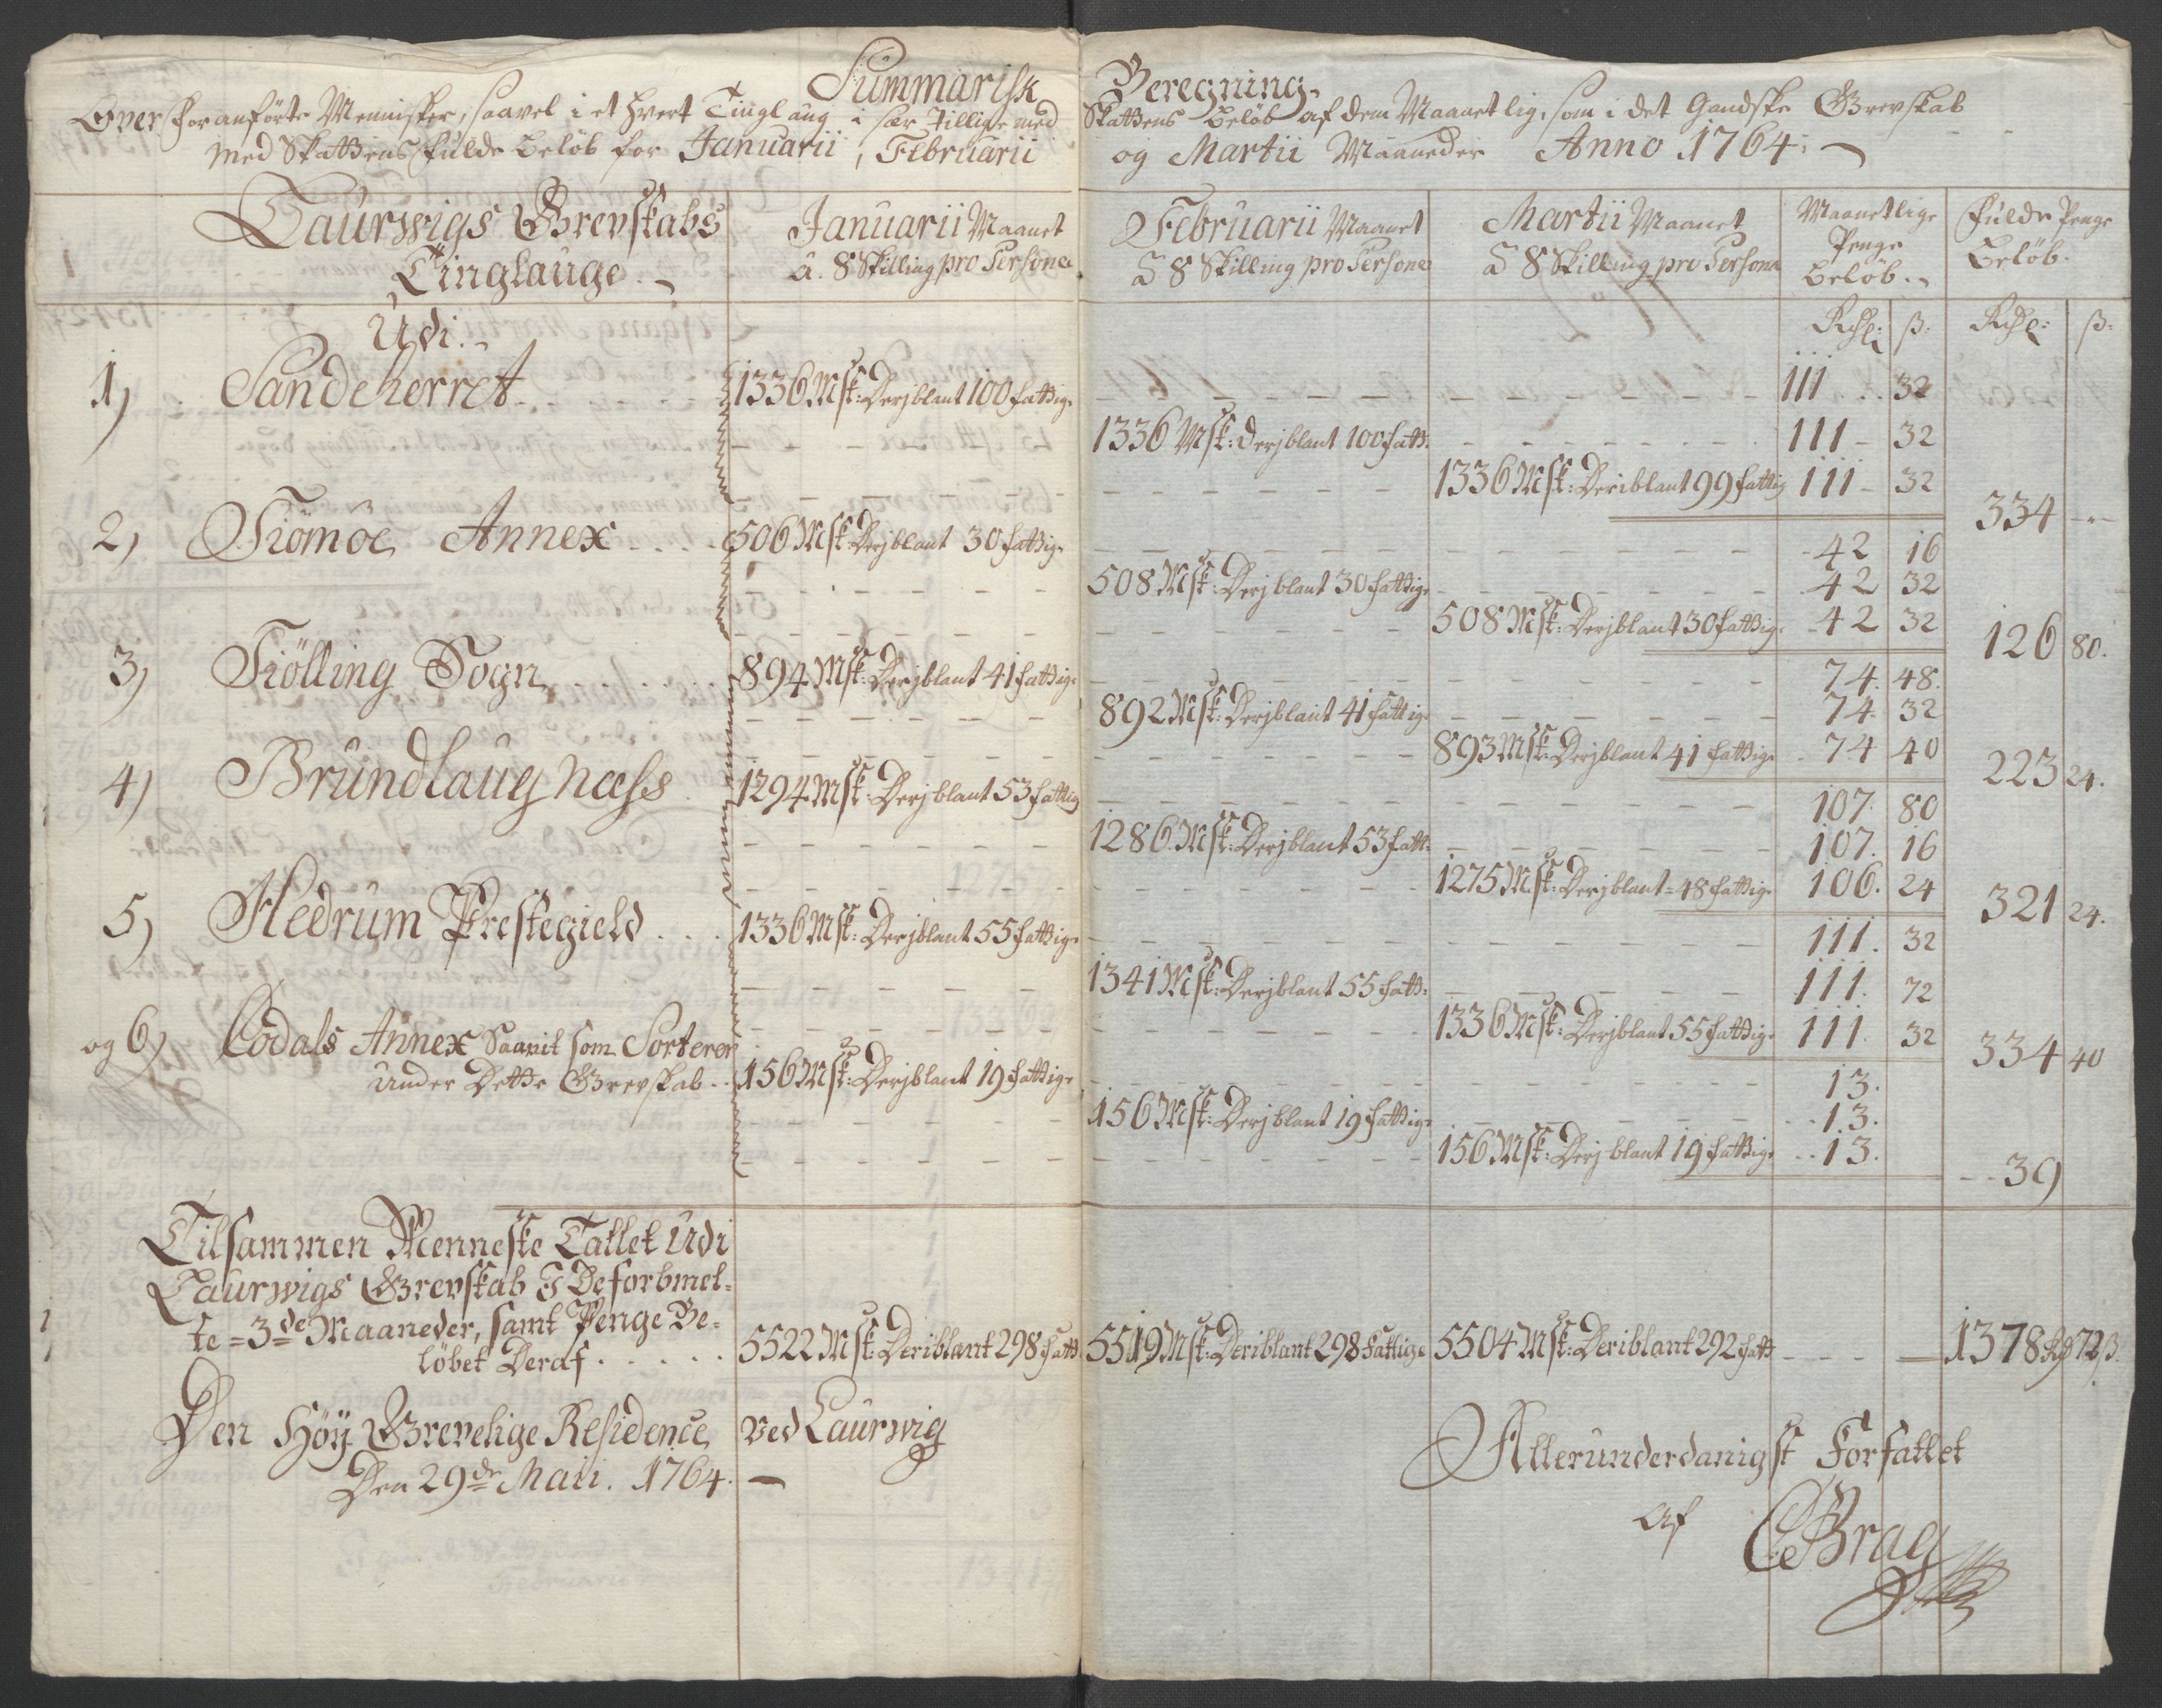 Summarisk Beregning
Over Foranførte Mennisker, saavel i et hvert Tinglaug i sær tillige med Skattens Beløb af dem Maanetlig, som i det Gandske Grevskab
med Skattens fulde beløb for Januarii, Februarii og Martii Maaneder Anno 1764.
Laurwigs Grevskabs Tinglauge. Januarii Maanet a. 8 Skilling pro Persona Februarii Maanet a 8 Skilling pro Persona Martii Maanet a 8 Skilling pro Persona Maanetlige Penge beløb. Fulde Penge Beløb.
Udi. Rdl: ß: Rdl: ß:
1) Sandeherret 1336 Msk: Derjblant 100 fattige 111 32
1336 Msk: derjblant 100 fatt: 111 32
1336 Msk: Deriblant 99 fattig 111 32
334
2) Tiömöe Annex 506 Msk: Derjblant 30 fattige 42 16
508 Msk: Derjblant 30 fattige 42 32
508 Msk: Derjblant 30 fattige 42 32
126 80.
3) Tiølling Sogn 894 Msk: Derjblant 41 fattige 74. 48.
892 Msk: Derjblant 41 fattige 74. 32
893 Msk: Derjblant 41 fattige 74 40
223 24.
4) Brundlaugnæss 1294 Msk: Derjblant 53 fattig 107. 80
1286 Msk: Derjblant 53 fatt: 107. 16
1275 Msk: Derjblant 48 fattige 106. 24
321 24.
5) Hedrum Prestegield 1336 Msk: Derjblant 55 fattige 111. 32
1341 Msk: Derjblant 55 fatt: 111. 72
1336 Msk: Derjblant 55 fattige 111. 32
334 40
og 6) Lodals Annex Saavit som Sorterer
under Dette Grevskab 156 Msk: Derjblant 19 fattige 13.
156 Msk: Derjblant 19 fattige 13.
156 Msk: Derjblant 19 fattige 13.
39
Tilsammen Menneske Tallet udi
Laurwigs Grevskab I De forbmel-
te = 3de Maaneder, samt Penge Be-
löbet Deraf 5522 Msk: Deriblant 298 fatt: 5519 Msk: Deriblant 298 Fattige 5504 Msk: Deriblant 292 fatt 1378 Rd 72 ß.
Den Höy Grevelige Residence ved Laurwig
Den 29de Maii. 1764.
Allerunderdanigst Forfattet
af CBrag